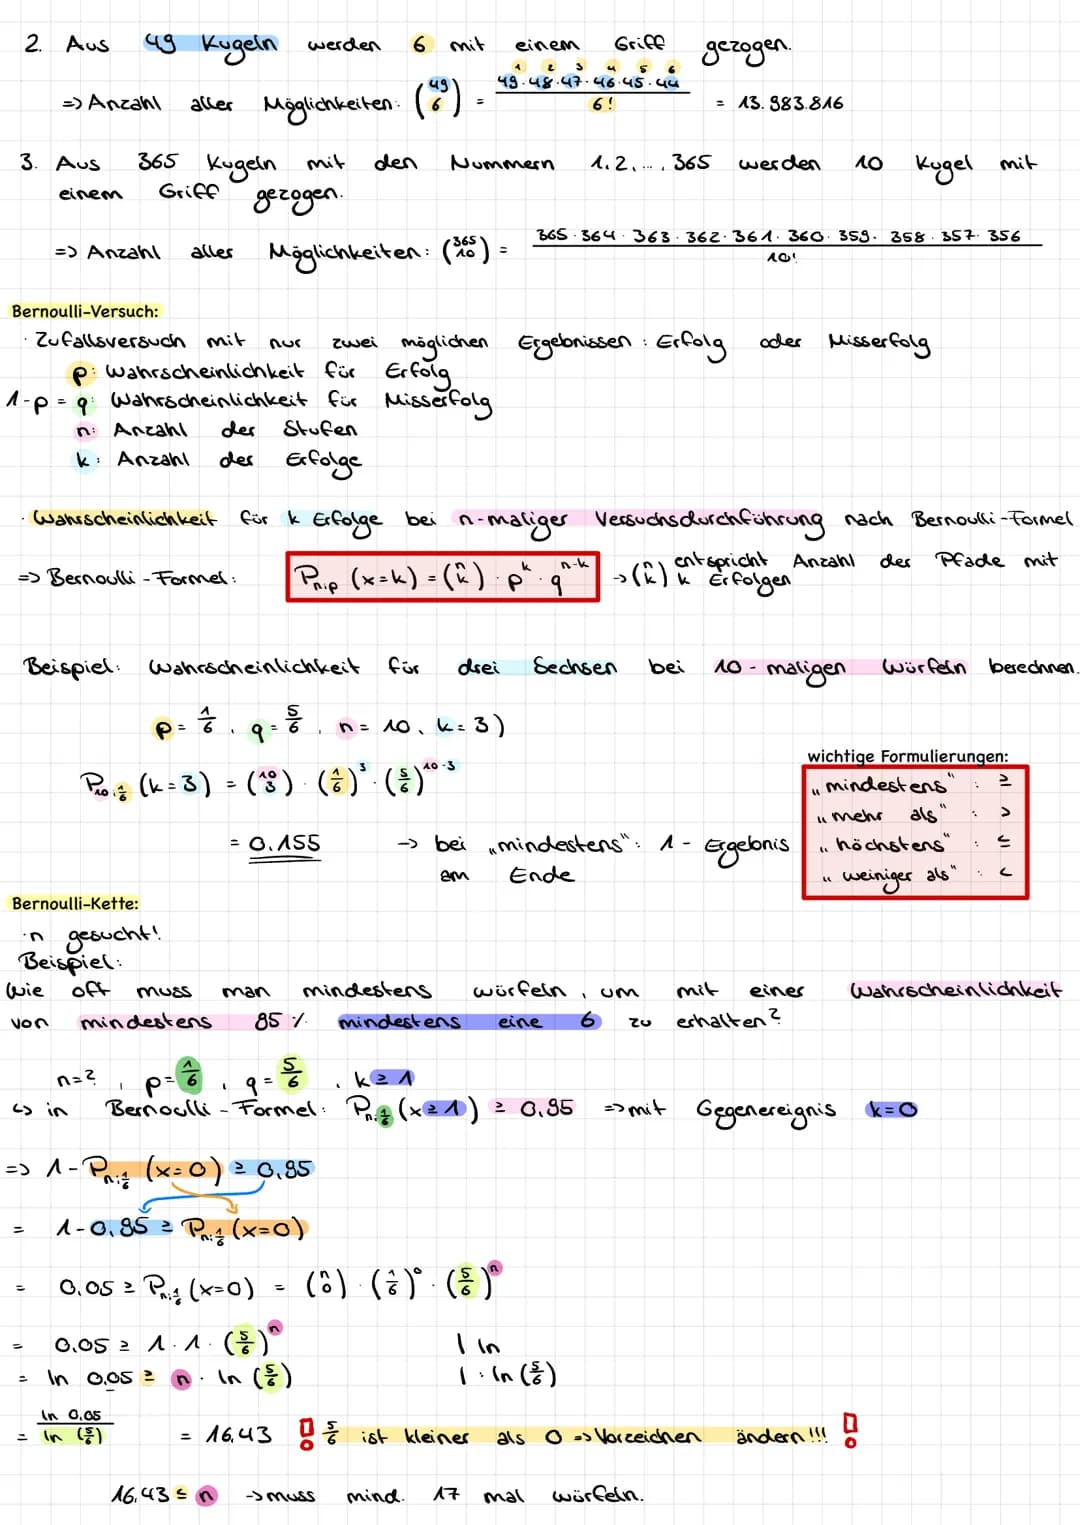 2. Aus 49 Kugeln werden 6 mit einem Griff gezogen.
1 2 3 4 5 6
=> Anzahl aller Möglichkeiten: (49 6) = 49·48·47·46·45·44 / 6! = 13.983.816
3. Aus 365 Kugeln mit den Nummern 1, 2, ..., 365 werden 10 Kugel mit
einem Griff gezogen.
=> Anzahl aller Möglichkeiten: (365 10) = 365·364·363·362·361·360·359·358·357·356 / 10!
Bernoulli-Versuch:
· Zufallsversuch mit nur zwei möglichen Ergebnissen: Erfolg oder Misserfolg
p: Wahrscheinlichkeit für Erfolg
1-p = q: Wahrscheinlichkeit für Misserfolg
n: Anzahl der Stufen
k: Anzahl der Erfolge
· Wahrscheinlichkeit für k Erfolge bei n-maliger Versuchsdurchführung nach Bernoulli-Formel
=> Bernoulli-Formel: P_n;p (x=k) = (n k) · p^k · q^n-k → (n k) entspricht Anzahl der Pfade mit
k Erfolgen
Beispiel: Wahrscheinlichkeit für drei Sechsen bei 10-maligen Würfeln berechnen.
p = 1/6, q = 5/6, n = 10, k = 3)
P_10;1/6 (k=3) = (10 3) · (1/6)^3 · (5/6)^10-3
= 0.155 → bei „mindestens“: 1 - Ergebnis
am Ende
wichtige Formulierungen:
„mindestens“ : ≥
„mehr als“ : >
„höchstens“ : ≤
„weiniger als“ : <
Bernoulli-Kette:
·n gesucht!
Beispiel:
Wie oft muss man mindestens würfeln, um mit einer Wahrscheinlichkeit
von mindestens 95 % mindestens eine 6 zu erhalten?
n=?, p=1/6, q=5/6, k≥1
↪ in Bernoulli-Formel: P_n;1/6 (x≥1) ≥ 0,95 => mit Gegenereignis k=0
=> 1-P_n;1/6 (x=0) ≥ 0,95
= 1-0,95 ≥ P_n;1/6 (x=0)
= 0,05 ≥ P_n;1/6 (x=0) = (n 0) · (1/6)^0 · (5/6)^n
= 0,05 ≥ 1·1·(5/6)^n | ln
= ln 0,05 ≥ n · ln (5/6) | : ln (5/6)
= ln 0,05 / ln (5/6) = 16,43 ! 5/6 ist kleiner als 0 => Vorzeichen ändern!!! !
16,43 ≤ n → muss mind. 17 mal würfeln.